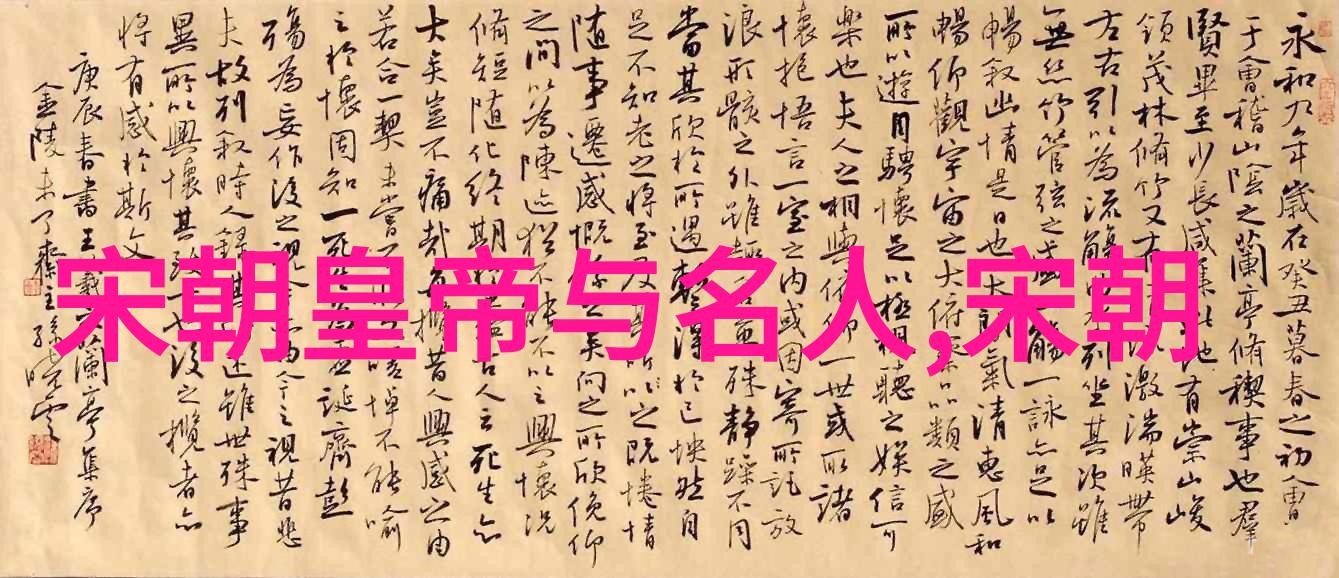 永和九年歲在癸丑暮春之初會
于會稽山陰之蘭亭脩禊事也羣
賢畢至少長咸集此地有崇山峻
領茂林脩竹又有激湍暎帶
左右引以為流觴曲水列坐其次雖
無絲竹管弦之盛一觴一詠亦足以
暢敘幽情是日也天朗氣清惠風和
暢仰觀宇宙之大俯察品類之盛
所以遊目騁懷足以極視聽之娛信可
樂也夫人之相與俯仰一世或取諸
懷抱悟言一室之內或因寄所託放
浪形骸之外雖趣舍萬殊靜躁不同
當其欣於所遇暫得於己快然自
足不知老之將至及其所以之既惓情
隨事遷感慨係之矣向之所欣俛仰
之間以為陳迹猶不能不以之興懷況
脩短隨化終期於盡古人云死生亦
大矣豈不痛哉每攬昔人興感之由
若合一契未嘗不嗟悼不能喻
之於懷固知一死生為虛誕齊彭
殤為妄作後之視今亦由今之視昔悲
夫故列敘時人錄其所述雖世殊事
異所以興懷其致一也後之攬者亦
將有感於斯文
庚辰春書王羲之蘭亭集序
金陵未了齋主孫雲
宋朝皇帝与名人,宋朝